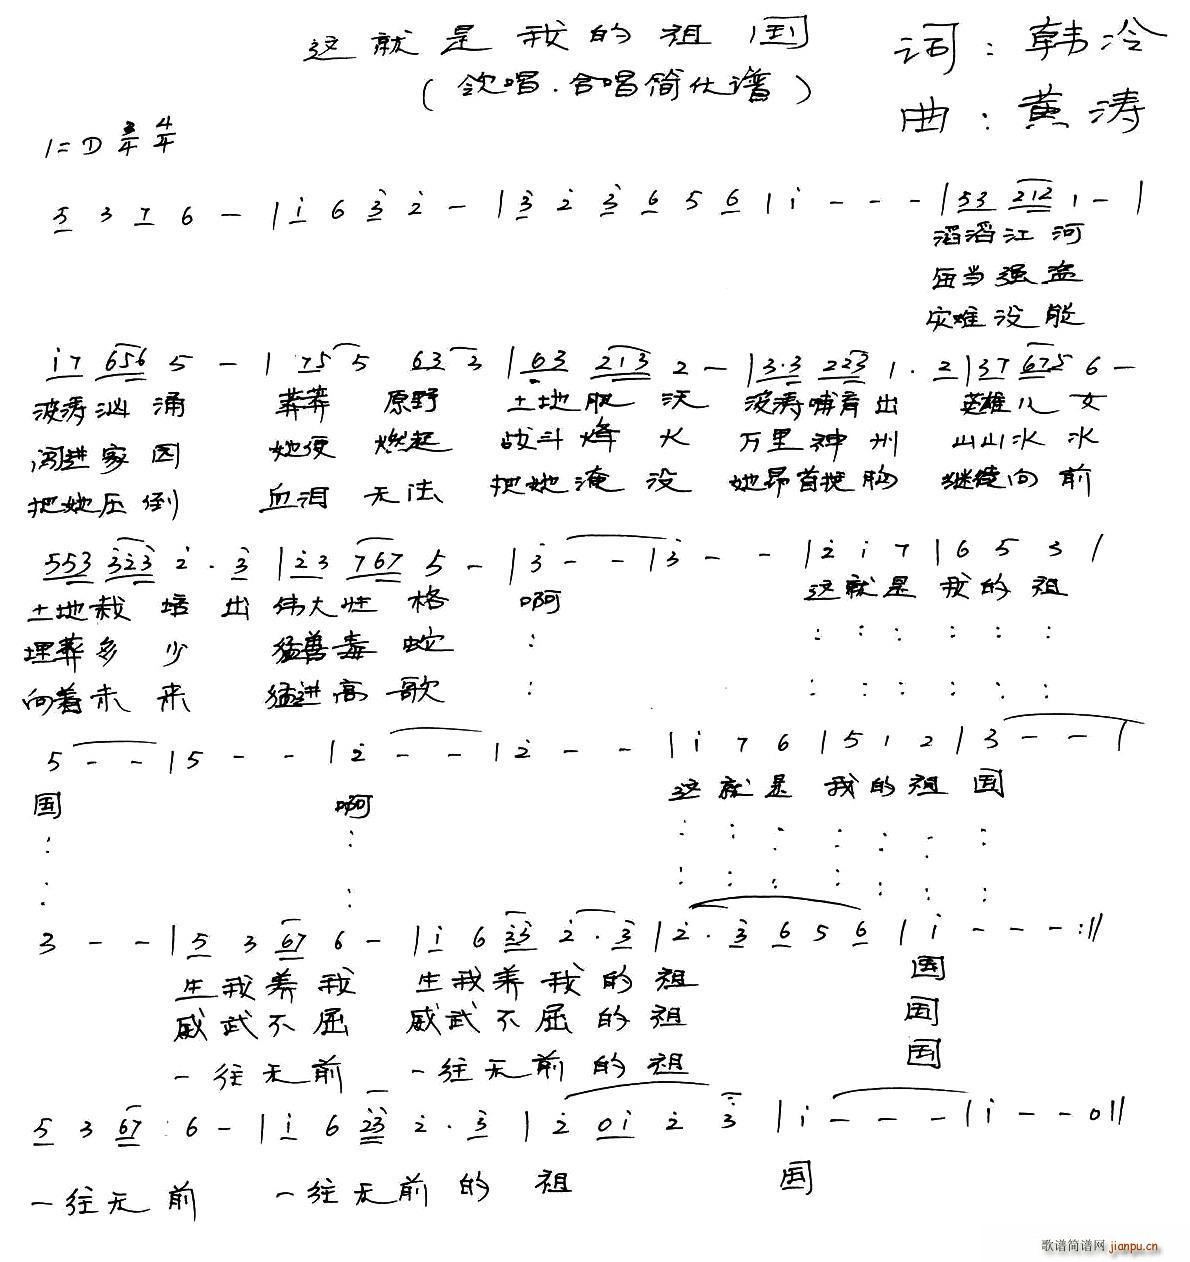 这就是我的祖国
(领唱.合唱简化谱)
词:韩冷
曲:黄涛
1=D 3/4 4/4
5 3 7 6 - | i 6 3 2 - | 3 2 3 6 5 6 | i - - - | 53 212 1 - |
滔滔江河
每当强盗
灾难没能
i7 656 5 - | 75 5 63 3 | 63 213 2 - | 3·3 223 1 · 2 | 37 675 6 -
波涛汹涌 莽莽原野 土地肥沃 波涛哺育出 英雄儿女
闯进家园 她便燃起 战斗烽火 万里神州 山山水水
把她压倒 血泪无法 把她淹没 她昂首挺胸 继续向前
553 323 2 · 3 | 23 767 5 - | 3 - - | 3 - - | 2 i 7 | 6 5 3 |
土地栽培出 伟大性格 啊 这就是我的祖
埋葬多少 猛兽毒蛇 : : : : : : :
向着未来 猛进高歌 : : : : : : :
5 - - | 5 - - | 2 - - | 2 - - | i 7 6 | 5 1 2 | 3 - - |
国 啊 这就是我的祖国
3 - - | 5 3 67 6 - | i 6 23 2 · 3 | 2 · 3 6 5 6 | i - - - :||
生我养我 生我养我的祖 国
威武不屈 威武不屈的祖 国
一往无前 一往无前的祖 国
5 3 67 6 - | i 6 23 2 · 3 | 2 0i 2 3 | i - - - | i - - 0 ||
一往无前 一往无前的祖 国
歌谱简谱网 jianpu.cn